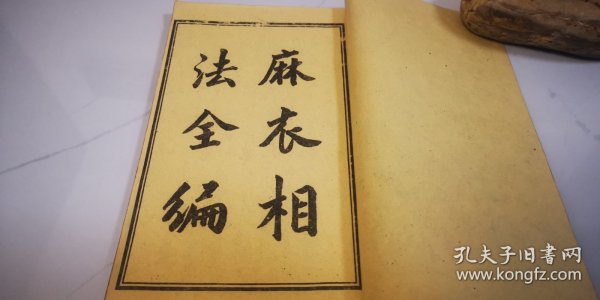 麻衣相
法全编
孔夫子旧書网
www.kongfz.com